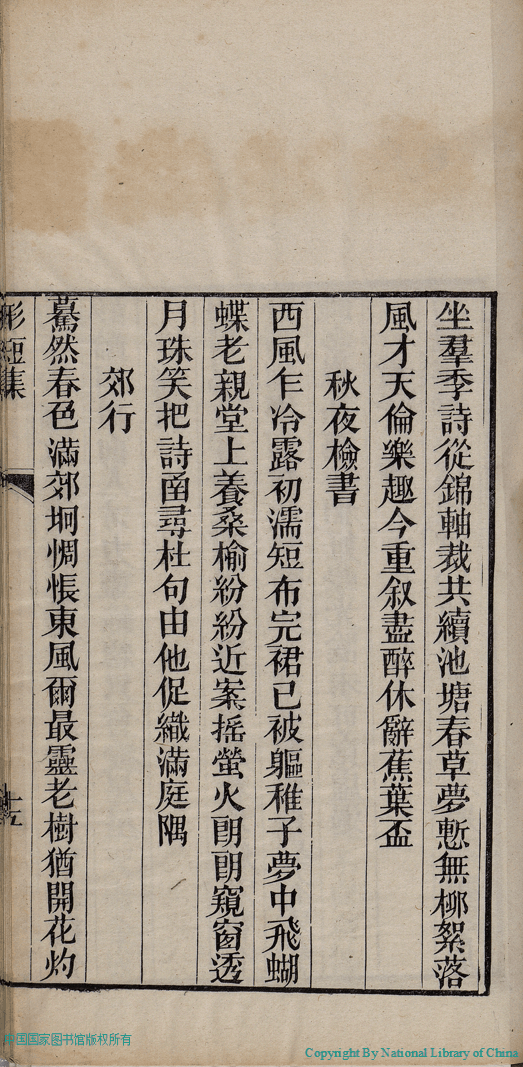 坐羣季詩從錦軸裁共續池塘春草夢慙無柳絮落
風才天倫樂趣今重叙盡醉休辭蕉葉盃
秋夜檢書
西風乍冷露初濡短布完裙已被軀稚子夢中飛蝴
蝶老親堂上養桑榆紛紛近案搖螢火朗朗窺窗透
月珠笑把詩函尋杜句由他促織滿庭隅
郊行
驀然春色滿郊坰惆悵東風爾最靈老樹猶開花灼
形短集
十五
中国国家图书馆版权所有
Copyright By National Library of China